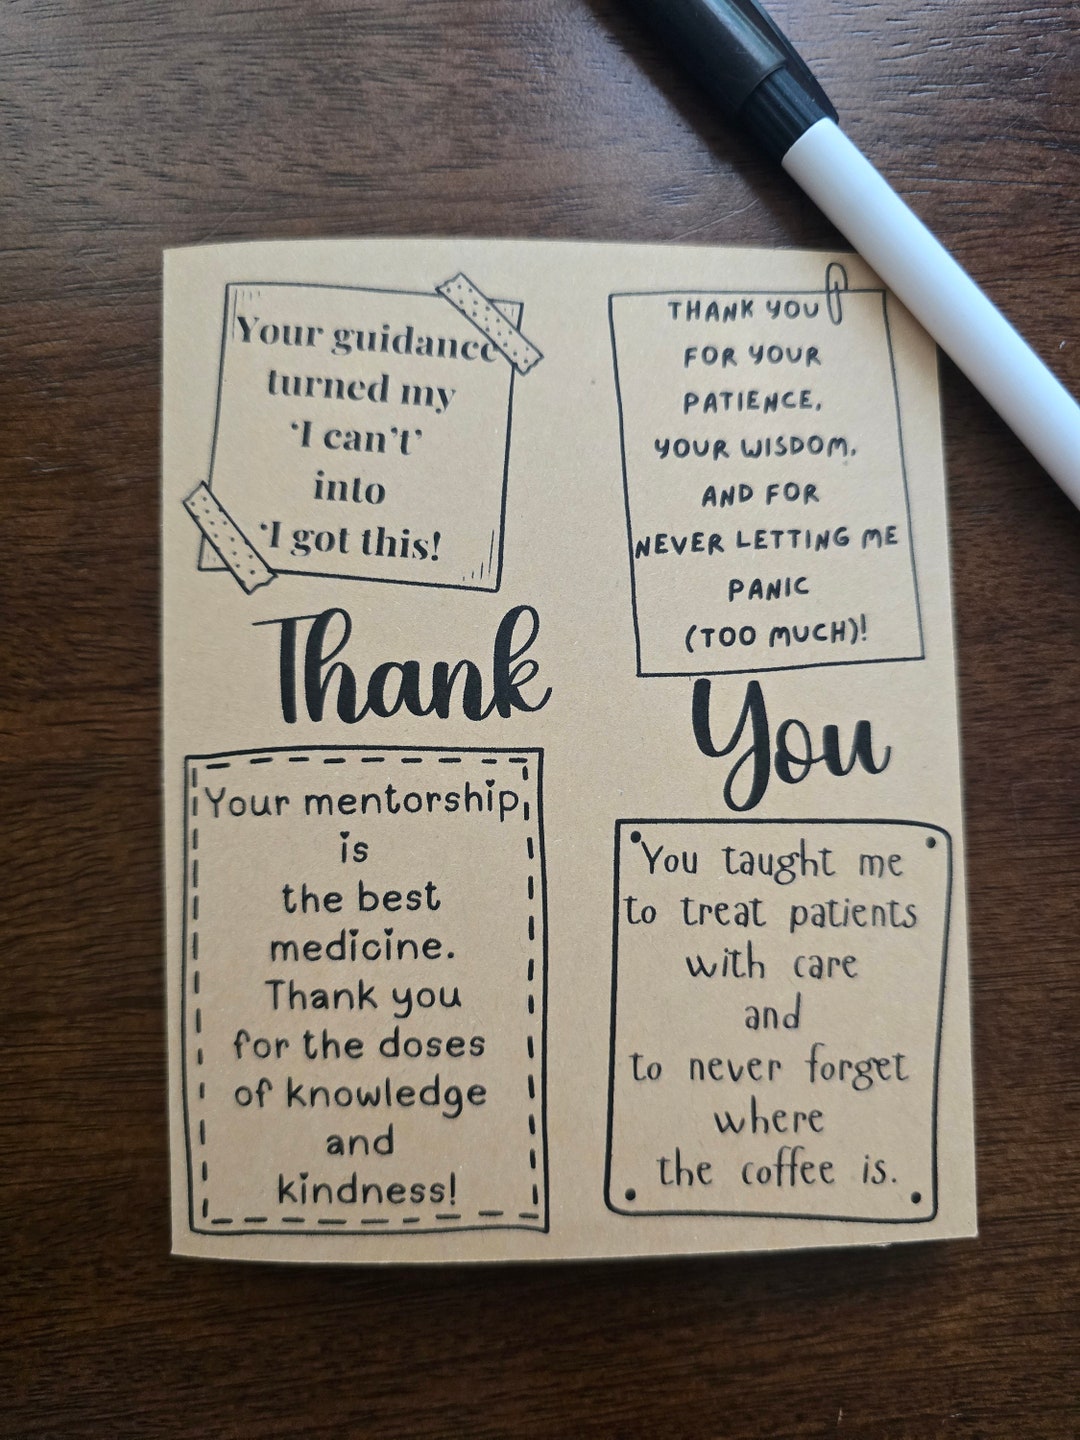 Your guidance
turned my
‘I can’t’
into
‘I got this!
THANK YOU
FOR YOUR
PATIENCE,
YOUR WISDOM,
AND FOR
NEVER LETTING ME
PANIC
(TOO MUCH)!
Thank
You
Your mentorship
is
the best
medicine.
Thank you
for the doses
of knowledge
and
kindness!
You taught me
to treat patients
with care
and
to never forget
where
the coffee is.